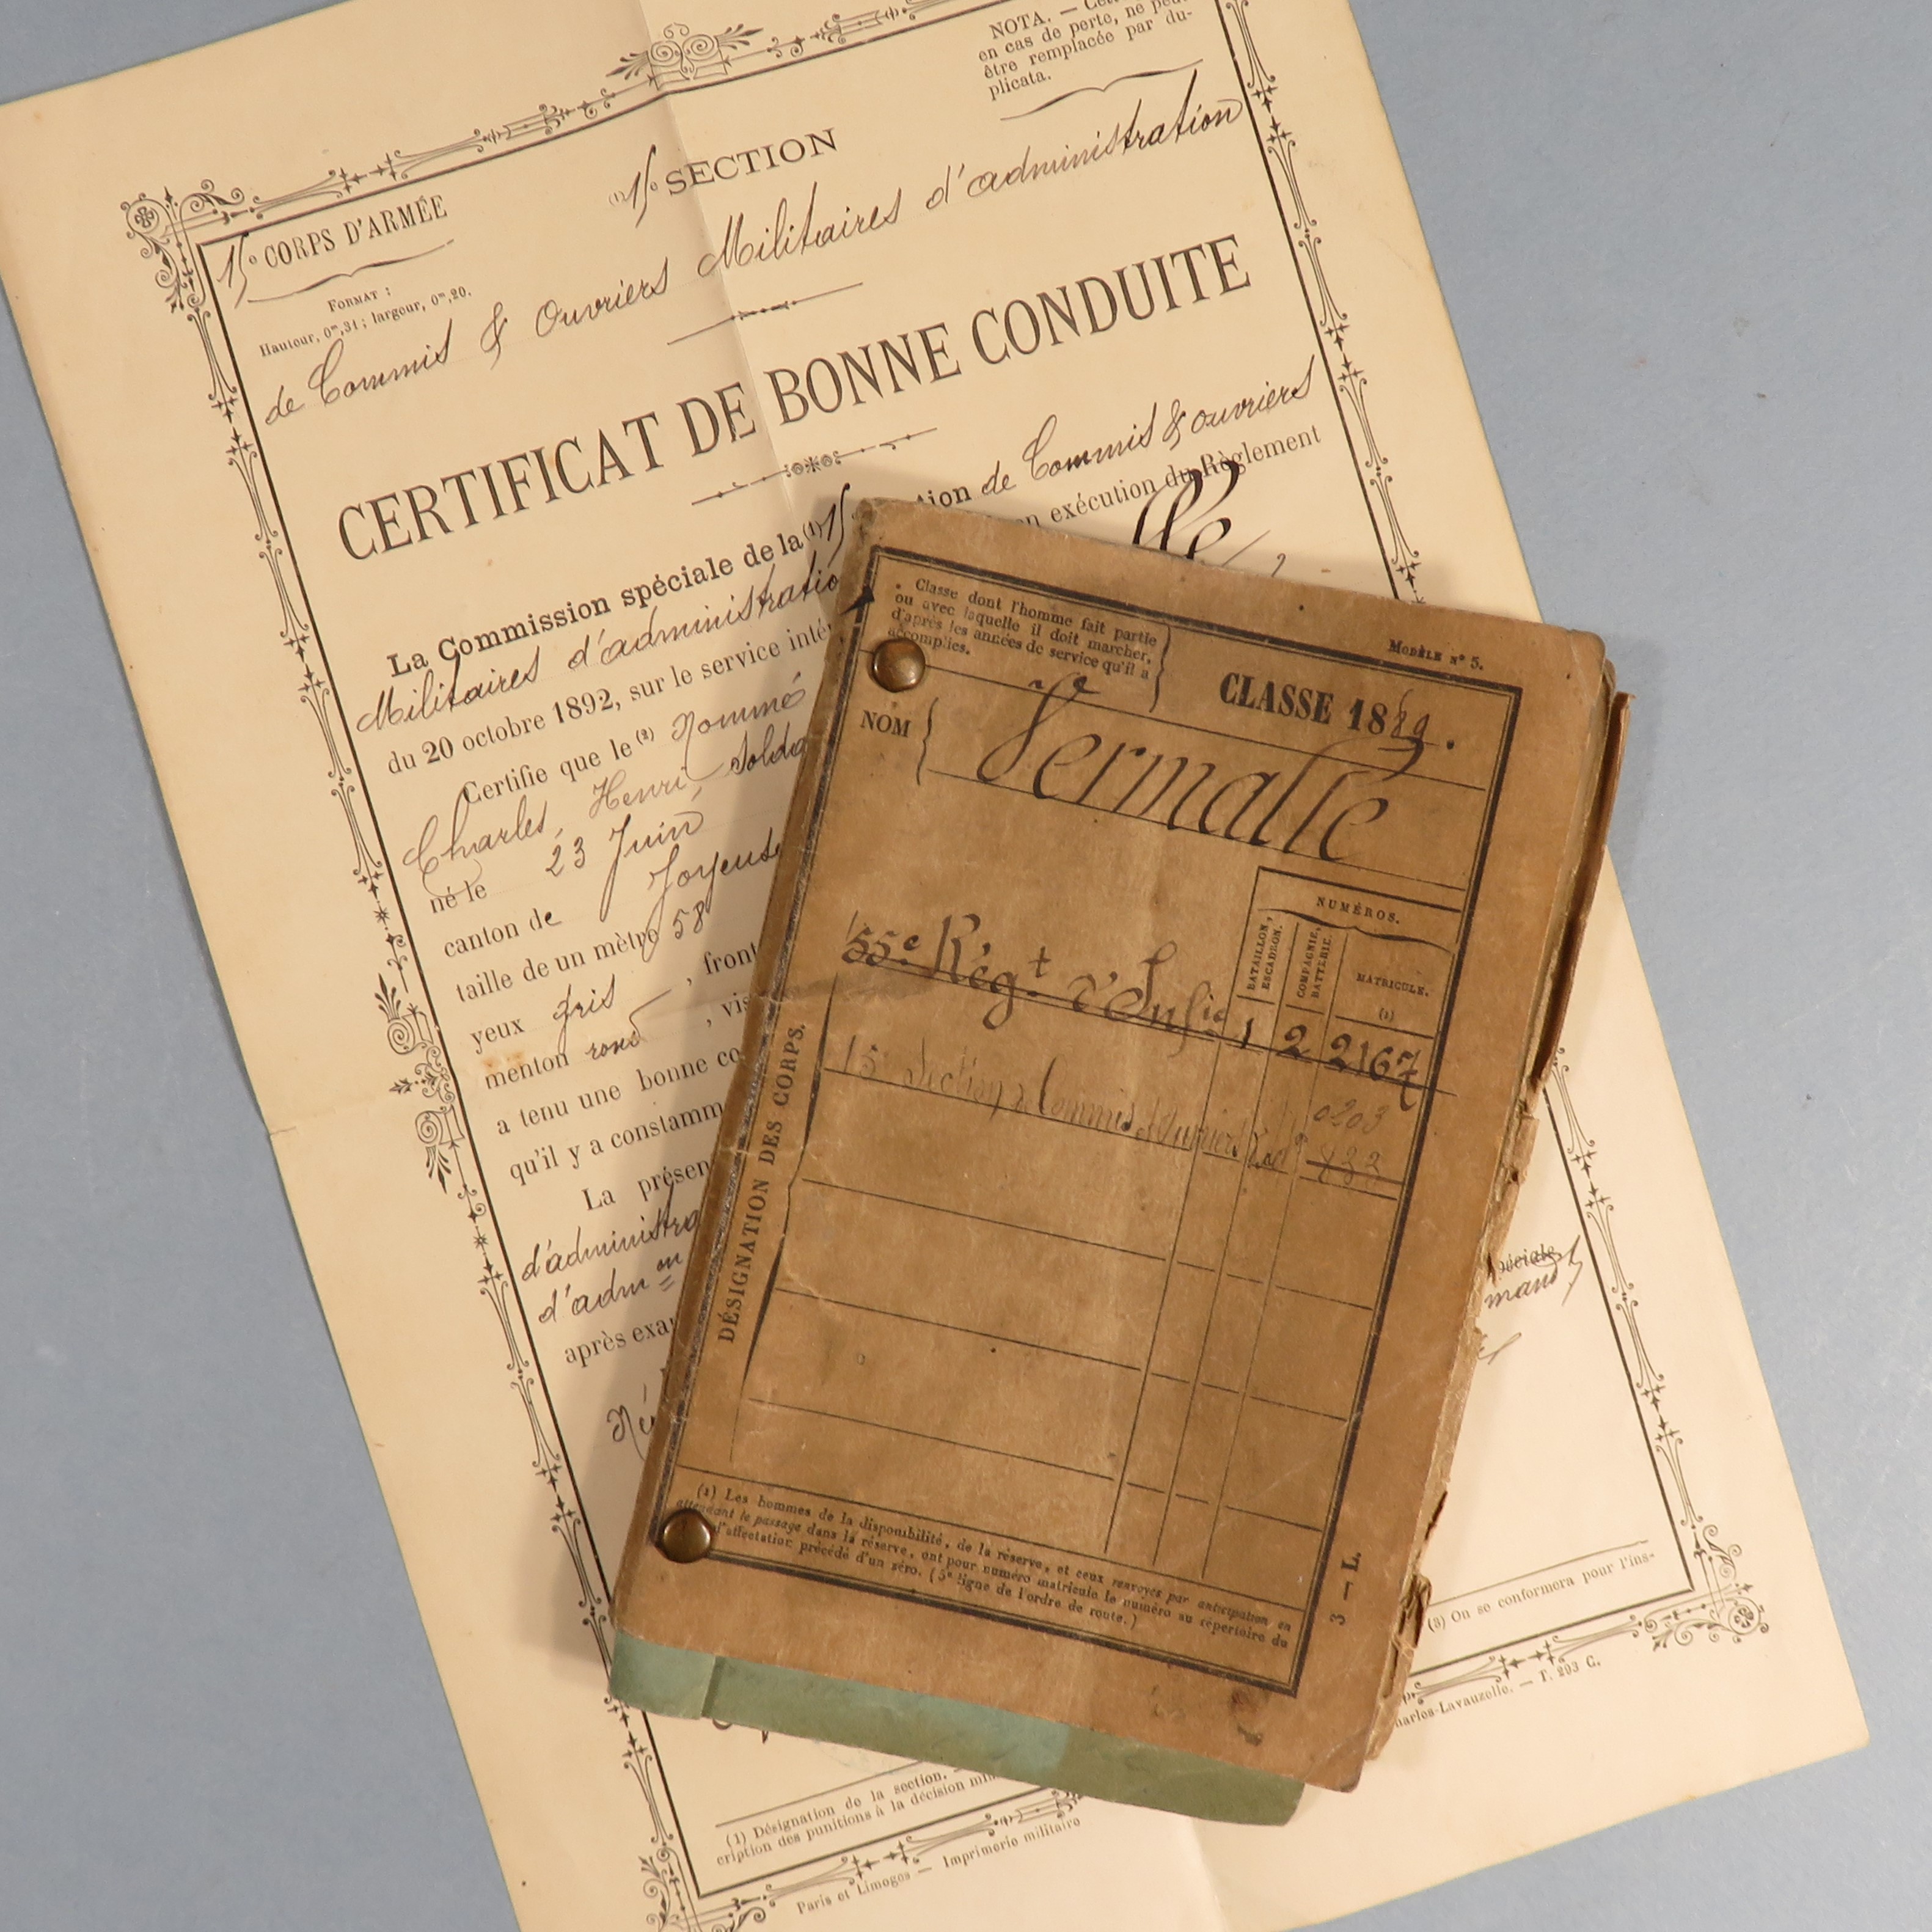 NOTA. — Cette
en cas de perte, ne peut
être remplacée par du-
plicata.
15e CORPS D'ARMÉE
(1) 15e SECTION
FORMAT :
Hauteur, 0m,31; largeur, 0m,20.
de Commis & Ouvriers Militaires d'administration
CERTIFICAT DE BONNE CONDUITE
La Commission spéciale de la (1) 15 tion de Commis & Ouvriers
Militaires d'administratio en exécution du Règlement
du 20 octobre 1892, sur le service inté
Certifie que le (2) Nommé
Charles, Henri, Solda
né le 23 Juin
canton de Joyeuse
taille de un mètre 58
yeux gris , front
menton rond , vis
a tenu une bonne co
qu'il y a constamm
La présen
d'administra
d'admon
après exa
péciale
mand
(3) On se conformera pour l'ins-
(1) Désignation de la section. —
cription des punitions à la décision min
Paris et Limoges — Imprimerie militaire
harles-Lavauzelle. — T. 293 G.
MODÈLE No 5.
Classe dont l'homme fait partie
ou avec laquelle il doit marcher,
d'après les années de service qu'il a
accomplies.
CLASSE 1889.
NOM
Vermalle
NUMÉROS.
BATAILLON,
ESCADRON.
COMPAGNIE,
BATTERIE.
MATRICULE.
(1)
DÉSIGNATION DES CORPS.
55e Régt d'Infie 1 2 2167
15 Section de Commis Ouvriers 0203
832
(1) Les hommes de la disponibilité, de la réserve, et ceux renvoyés par anticipation en
attendant le passage dans la réserve, ont pour numéro matricule le numéro au répertoire du
d'affectation précédé d'un zéro. (5e ligne de l'ordre de route.)
3 — L.